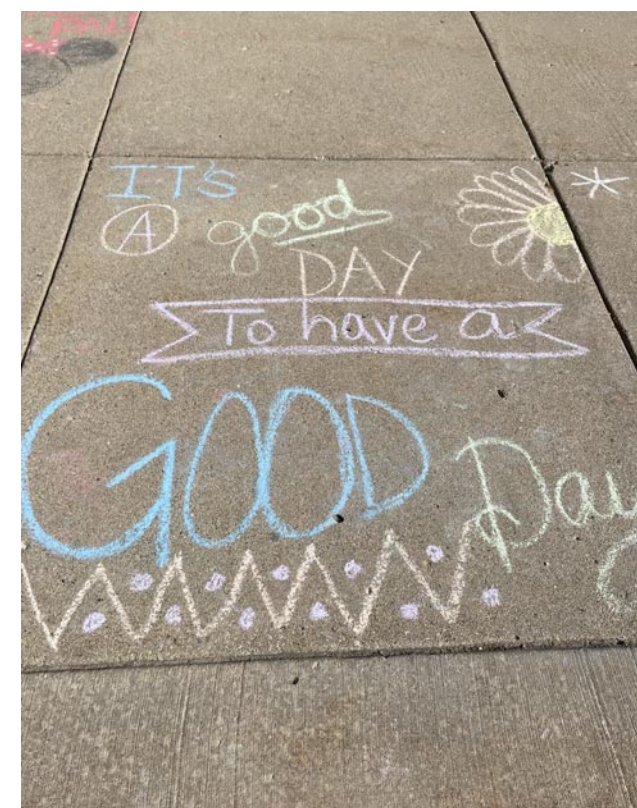 IT'S
A good
DAY
To have a
GOOD Day